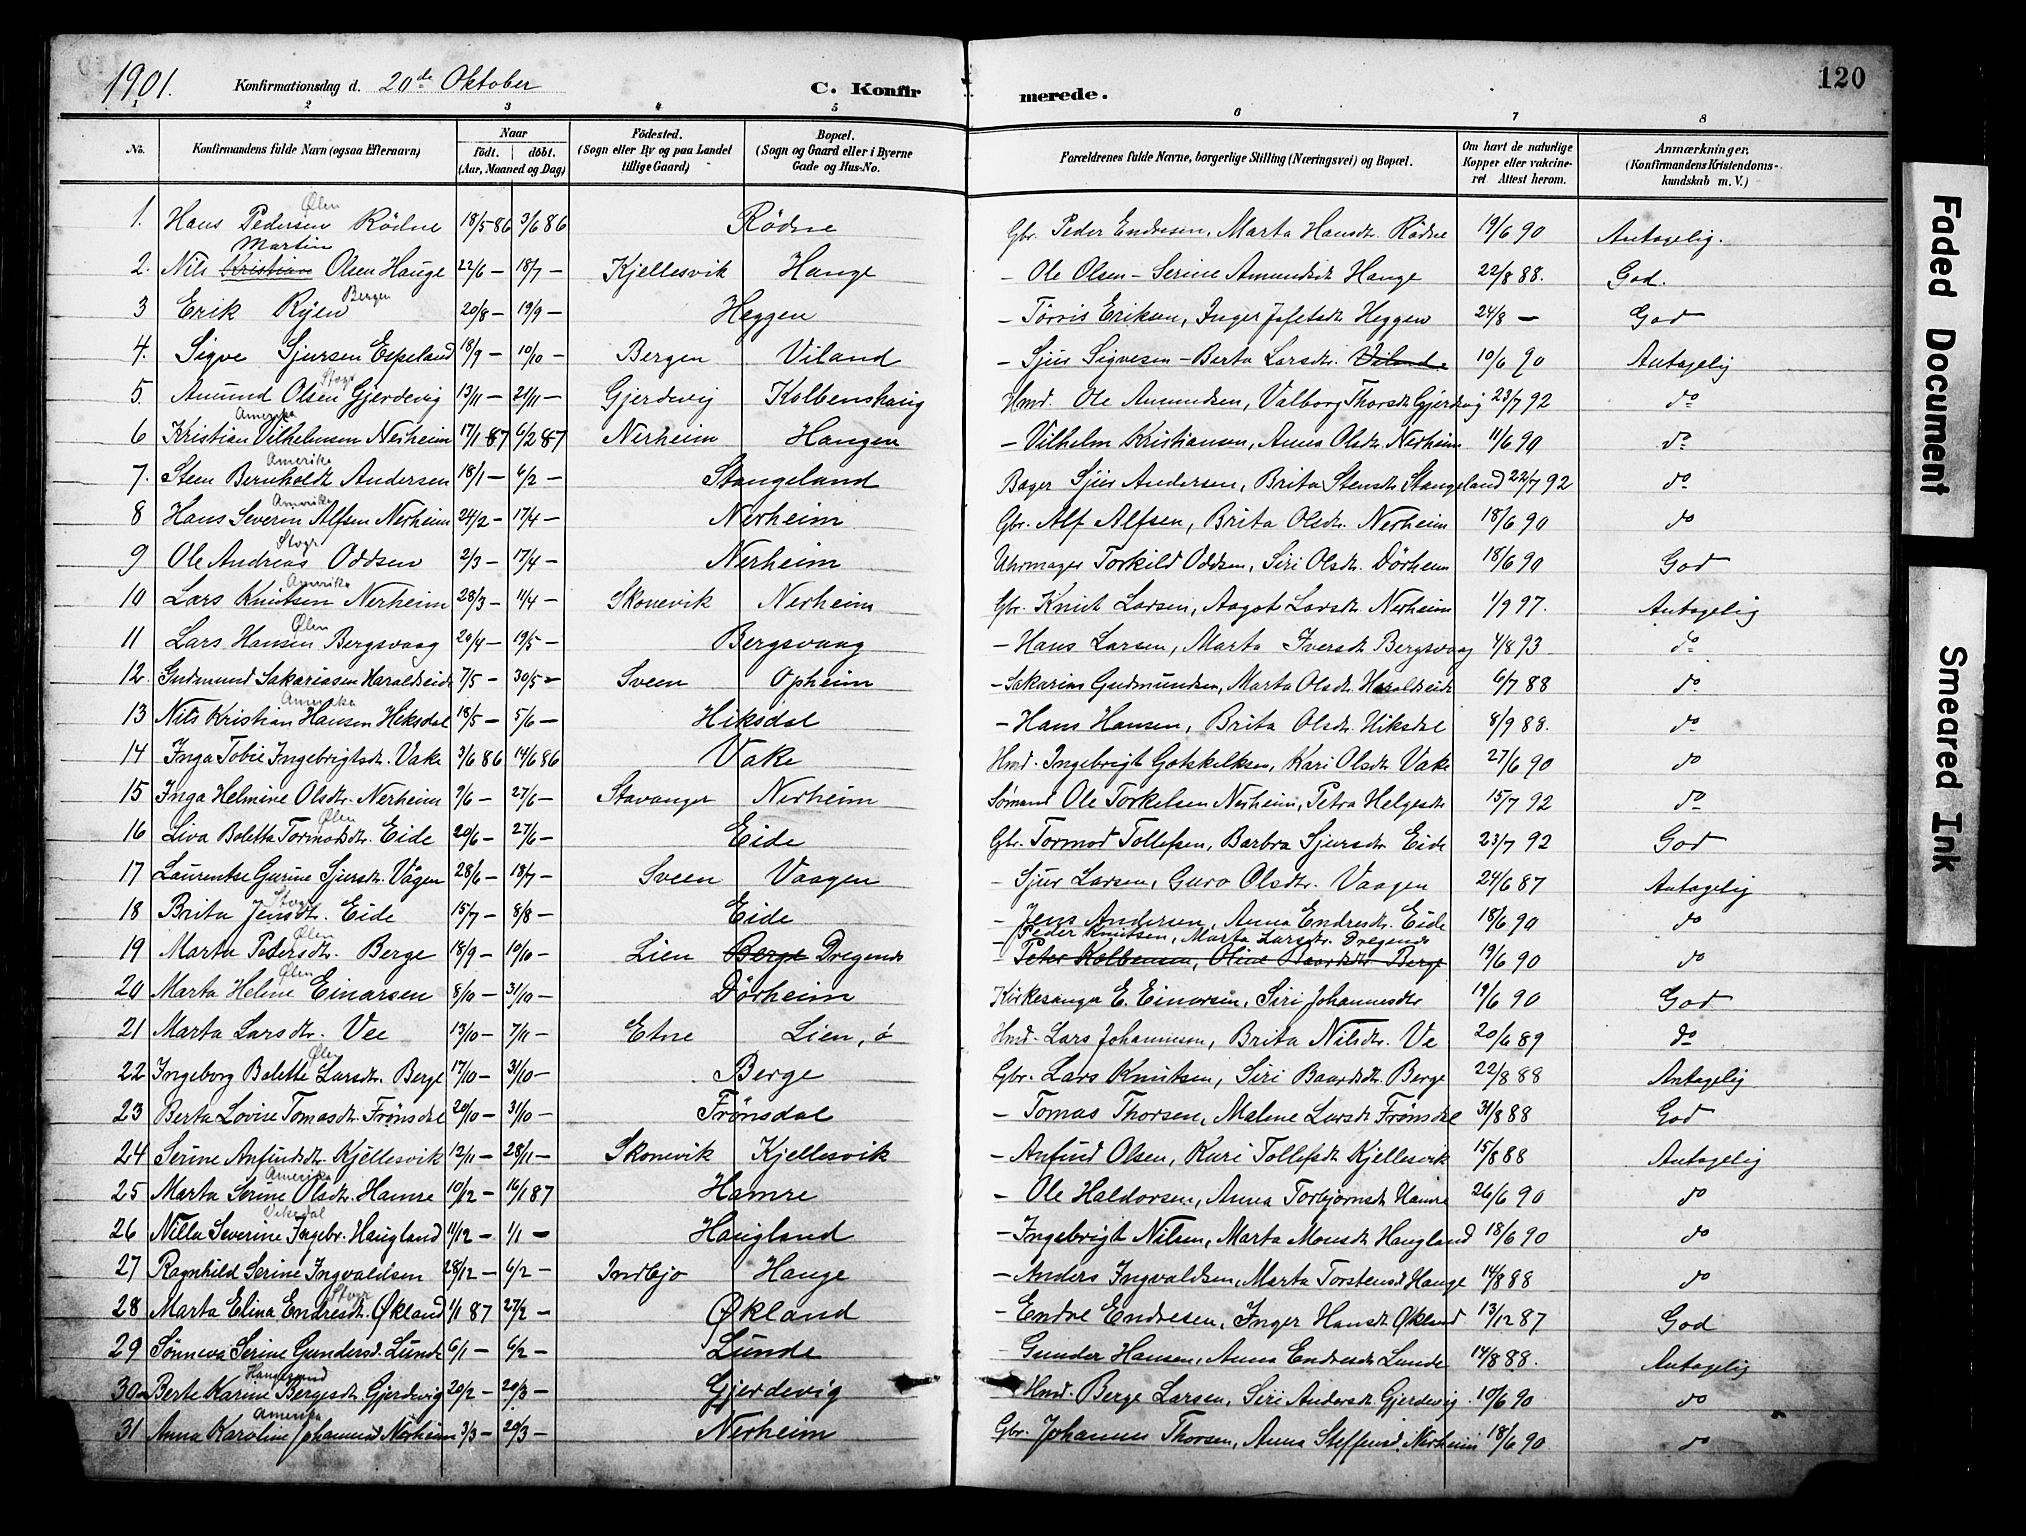 1901. Konfirmationsdag d. 20de Oktober C. Konfirmerede. 120
1 2 3 4 5 6 7 8
No. Konfirmandens fulde Navn (ogsaa Efternavn) Naar født. døbt. (Aar, Maaned og Dag) Fødested. (Sogn eller By og paa Landet tillige Gaard) Bopæl. (Sogn og Gaard eller i Byerne Gade og Hus-No. Forældrenes fulde Navne, borgerlige Stilling (Næringsvei) og Bopæl. Om havt de naturlige Kopper eller vakcineret Attest herom. Anmærkninger, (Konfirmandens Kristendomskundskab m. V.)
Ølen
1. Hans Pedersen Rödne 18/5-86 3/6 86 Rödne Gbr. Peder Endresen, Marta Hansdtr. Rödne 19/6 90 Antagelig.
Martin
2. Nils Kristian Olsen Hauge 22/6 - 18/7 - Kjellesvik Hauge - Ole Olsen - Serine Amundsdt. Hauge 22/8 88. God.
Bergen
3 Erik Ryen 20/8 - 19/9 - Heggen - Törris Eriksen, Inger Jofetsdt. Heggen 24/8 - God
4. Sigve Sjursen Espeland 18/9 - 10/10 - Bergen Viland - Sjur Sigvesen - Berta Larsdtr. Viland 10/6 90 Antagelig
Stvgr
5 Amund Olsen Gjerdevig 13/11 - 21/11 - Gjerdevig Kolbenshaug Hmd. Ole Amundsen, Valborg Thorsdt. Gjerdevig 23/7 92 do
Amerika
6 Kristian Vilhelmsen Nerheim 17/1-87 6/2 87 Nerheim Haugen - Vilhelm Kristiansen, Anna Olsdtr. Nerheim 11/6 90 do
Amerika
7. Steen Bernholdt Andersen 18/1 - 6/2 - Stangeland Bager Sjur Andersen, Brita Stensdt. Stangeland 22/7 92 do
Amerika
8 Hans Severin Alfsen Nerheim 24/2 - 17/4 - Nerheim Gbr. Alf Alfsen, Brita Olsdtr. Nerheim 18/6 90 do
Stvgr
9 Ole Andreas Oddsen 2/3 - 17/4 - Nerheim Uhrmager Torkild Oddsen, Siri Olsdtr. Dörheim 18/6 90 God
Amerika
10 Lars Knutsen Nerheim 28/3 - 11/4 - Skonevik Nerheim Gbr. Knut Larsen, Aagot Larsdtr. Nerheim 1/9 97. Antagelig
Ølen
11 Lars Hansen Bergsvaag 20/4 - 19/5 - Bergsvaag - Hans Larsen, Marta Iversdt. Bergsvaag 4/8 93 do
12. Gudmund Sakariasen Haraldseide 7/5 - 30/5 - Sveen Opheim - Sakarias Gudmundsen, Marta Olsdt. Haraldseide 6/7 88 do
Amerika
13 Nils Kristian Hansen Hiksdal 18/5 - 5/6 - Hiksdal - Hans Hansen, Brita Olsdtr. Hiksdal 8/9 88. do
14 Inga Tobie Ingebrigtsdtr. Vake 3/6 86 14/6 86 Vake Hmd. Ingebrigt Gotskelksen, Kari Olsdtr. Vake 27/6 90 do
15 Inga Helmine Olsdtr. Nerheim 9/6 - 27/6 - Stavanger Nerheim Sømand Ole Torkelsen Nerheim, Petra Helgesdt. 15/7 92 do
Ølen
16 Liva Boletta Tormodsdt. Eide 20/6 - 27/6 - Eide Gbr. Tormod Tollefsen, Barbra Sjursdt. Eide 23/7 92 God
17 Laurentse Gurine Sjursdtr. Vågen 28/6 - 18/7 - Sveen Vaagen - Sjur Larsen, Guro Olsdtr. Vaagen 24/6 87 Antagelig
Stvgr
18 Brita Jensdt. Eide 15/7 - 8/8 - Eide - Jens Andersen, Anna Endresdt. Eide 18/6 90 do
Ølen - Peder Knutsen, Marta Larsdtr. Dregends
19 Marta Pedersdtr. Berge 18/9 - 10/10 - Lien Berge Dregends - Peter Kolbensen, Oline Baardsdt. Berge 19/6 90 do
Ølen
20 Marta Heline Einarsen 8/10 - 31/10 - Dörheim Kirkesanger E. Einarsen, Siri Johannesdtr 19/6 90 God
21 Marta Larsdtr. Vee 13/10 - 7/11 - Etne Lien, ö Hmd. Lars Johannesen, Brita Nilsdtr. Ve 20/6 89 do
Ølen
22 Ingeborg Bolette Larsdtr. Berge 17/10 - 31/10 - Berge Gbr. Lars Knutsen, Siri Baardsdt. Berge 22/8 88 Antagelig
23 Berta Lovise Tomasdt. Frönsdal 20/10 - 31/10 - Frönsdal - Tomas Thorsen, Malene Larsdt. Frönsdal 31/8 88 God
24 Serine Anfindsdt. Kjellesvik 12/11 - 28/11 - Skonevik Kjellesvik - Anfind Olsen, Kari Tollefsdt Kjellesvik 15/8 88 Antagelig
Amerika
25 Marta Serine Olsdtr. Hamre 10/12 - 16/1 87 Hamre - Ole Haldorsen, Anna Torbjørnsdt. Hamre 26/6 90 do
Vikedal
26 Nilla Severine Ingebr. Haugland 11/12 - 1/1 - Haugland - Ingebrigt Nilsen, Marta Monsdt. Haugland 18/6 90 do
27 Ragnhild Serine Ingvaldsen 28/12 - 6/2 - Indbjo Hauge - Anders Ingvaldsen, Marta Torstensd. Hauge 14/8 88 do
Stvgr
28 Marta Elina Endresdt. Økland 1/1 87 27/2 - Økland - Endre Endresen, Inger Hansdt. Økland 13/12 87 God
29 Sønneva Serine Gundersd. Lunde 6/1 - 6/2 - Lunde - Gunder Hansen, Anna Endresdt. Lunde 14/8 88. Antagelig
Haugesund
30 Berte Karine Bergesdt. Gjerdevig 20/2 - 20/3 - Gjerdevig - Hmd. Berge Larsen, Siri Andersdt. Gjerdevig 10/6 90 do
Amerika
31 Anna Karoline Johannesd Nerheim 3/3 - 20/3 - Nerheim Gbr. Johannes Thorsen, Anna Steffensd. Nerheim 18/6 90 do
Faded Document
Smeared Ink